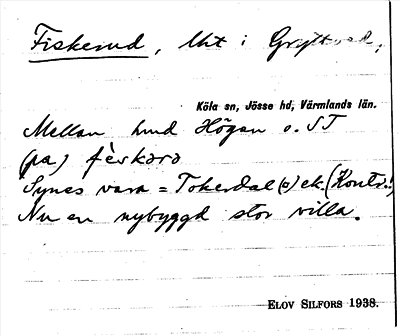 Fiskerud, lht i
Köla sn, Jösse hd, Värmlands län.
Mellan hmd Högen o. ST
(pa) fèskərə
Synes vara = Tokerdal (o) ek. (Kontr.!)
Nu en nybyggd stor villa.
ELOV SILFORS 1938.